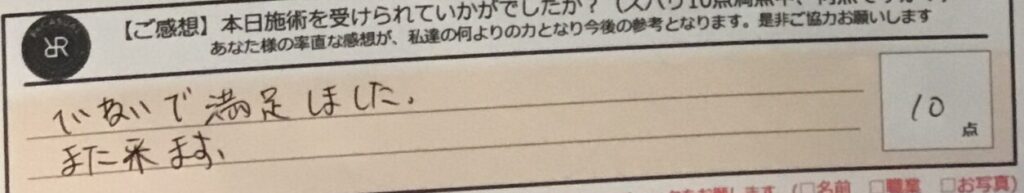 【ご感想】本日施術を受けられていかがでしたか？（ズバリ10点満点中、何点ですか？）
あなた様の率直な感想が、私達の何よりの力となり今後の参考となります。是非ご協力お願いします
ていねいで満足しました。
また来ます。
10点
をお願いします（□名前 □職業 □お写真）